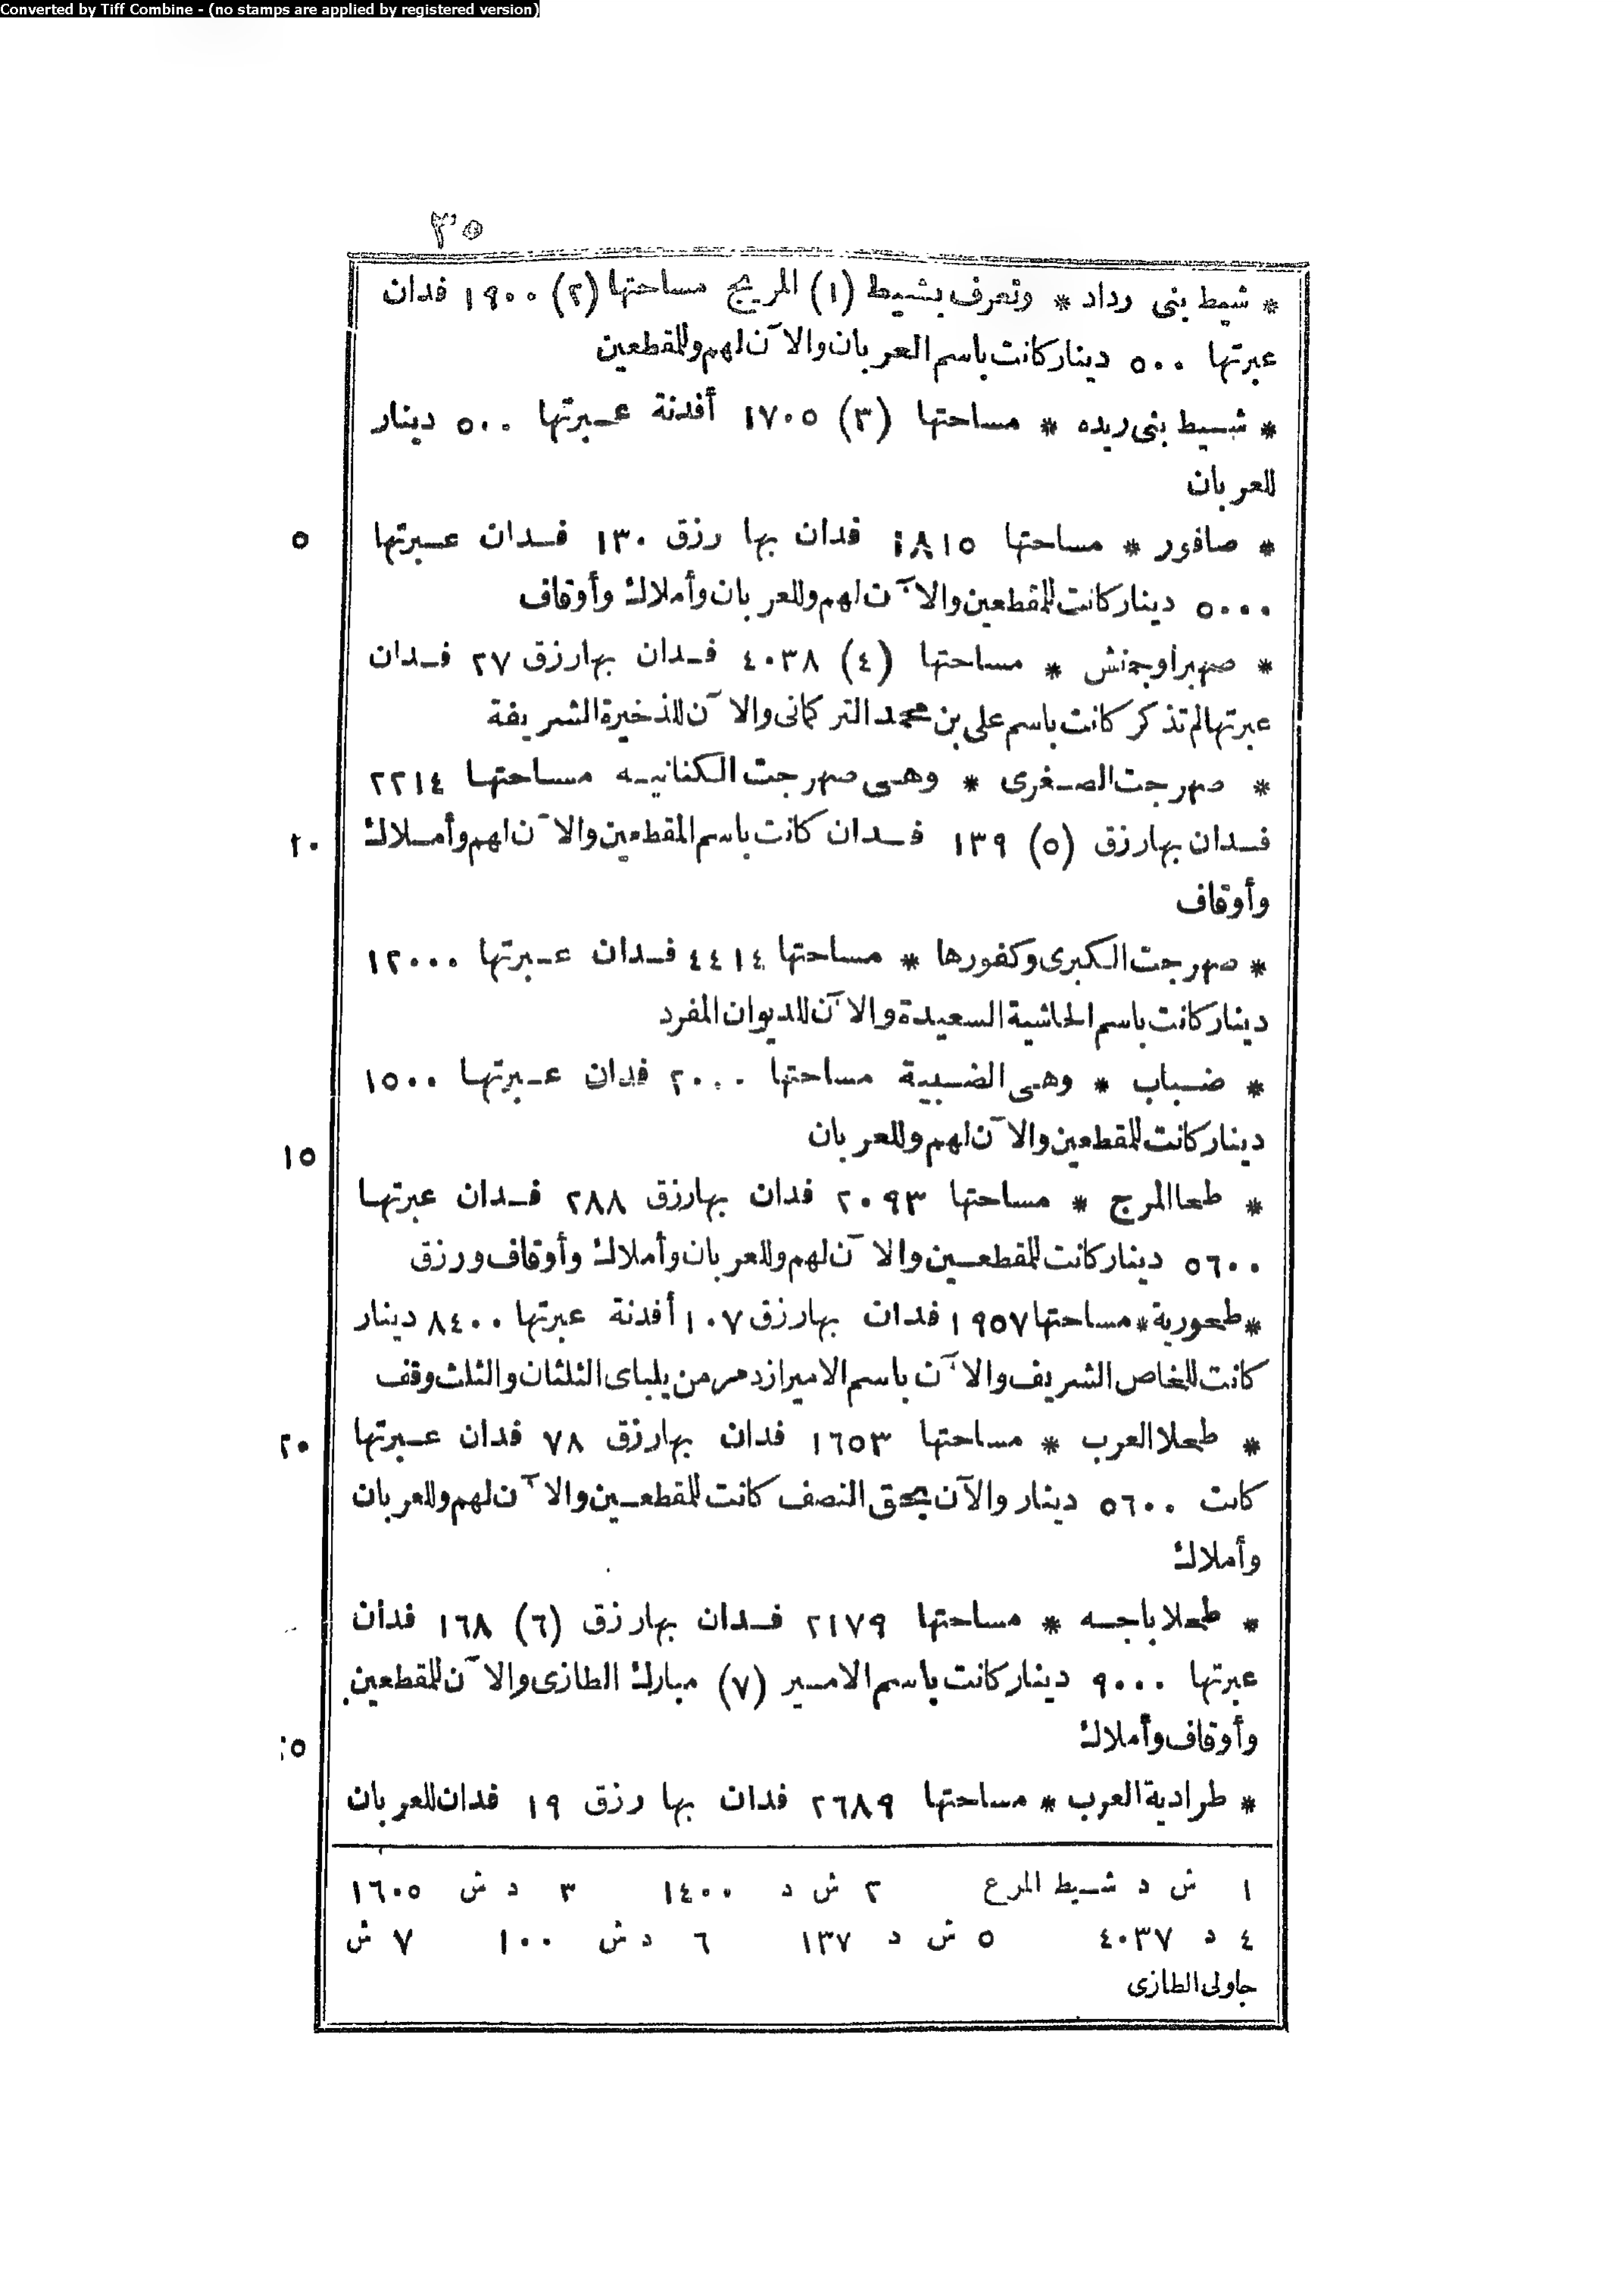 Converted by Tiff Combine - (no stamps are applied by registered version)
٣٥
* شيط بنى رداد * وتعرف بشيط (١) المريج مساحتها (٢) ١٩٠٠ فدان
عبرتها ٥٠٠ دينار كانت باسم العربان والآن لهم وللمقطعين
* شيط بنى ريده * مساحتها (٣) ١٧٠٥ أفدنة عبرتها ٥٠٠ دينار
للعربان
* صافور * مساحتها ١٨١٥ فدان بها رزق ١٣٠ فدان عبرتها ٥
٥٠٠٠ دينار كانت للمقطعين والآن لهم وللعربان وأملاك وأوقاف
* صهبرا وجمنش * مساحتها (٤) ٤٠٣٨ فدان بها رزق ٢٧ فدان
عبرتها لم تذكر كانت باسم على بن محمد التركمانى والآن للذخيرة الشريفة
* صهرجت الصغرى * وهى صهرجت الكنانيه مساحتها ٢٢١٤
فدان بها رزق (٥) ١٣٩ فدان كانت باسم المقطعين والآن لهم وأملاك ١٠
وأوقاف
* صهرجت الكبرى وكفورها * مساحتها ٤٤١٤ فدان عبرتها ١٢٠٠٠
دينار كانت باسم الحاشية السعيدة والآن للديوان المفرد
* ضباب * وهى الضبيبة مساحتها ٢٠٠٠ فدان عبرتها ١٥٠٠
دينار كانت للمقطعين والآن لهم وللعربان ١٥
* طحا المرج * مساحتها ٢٠٩٣ فدان بها رزق ٢٨٨ فدان عبرتها
٥٦٠٠ دينار كانت للمقطعين والآن لهم وللعربان وأملاك وأوقاف ورزق
* طحورية * مساحتها ١٩٥٧ فدان بها رزق ١٠٧ أفدنة عبرتها ٨٤٠٠ دينار
كانت للخاص الشريف والآن باسم الامير ازدمر من يلباى الثلثان والثلث وقف
* طحلا العرب * مساحتها ١٦٥٣ فدان بها رزق ٧٨ فدان عبرتها ٢٠
كانت ٥٦٠٠ دينار والآن بحق النصف كانت للمقطعين والآن لهم وللعربان
وأملاك
* طحلا باجه * مساحتها ٢١٧٩ فدان بها رزق (٦) ١٦٨ فدان
عبرتها ٩٠٠٠ دينار كانت باسم الامير (٧) مبارك الطازى والآن للمقطعين
وأوقاف وأملاك ٢٥
* طرادية العرب * مساحتها ٢٦٨٩ فدان بها رزق ١٩ فدان للعربان
١ ش د شيط المرع ٢ ش د ١٤٠٠ ٣ د ش ١٦٠٥
٤ د ٤٠٣٧ ٥ ش د ١٣٧ ٦ د ش ١٠٠ ٧ ش
جاولى الطازى